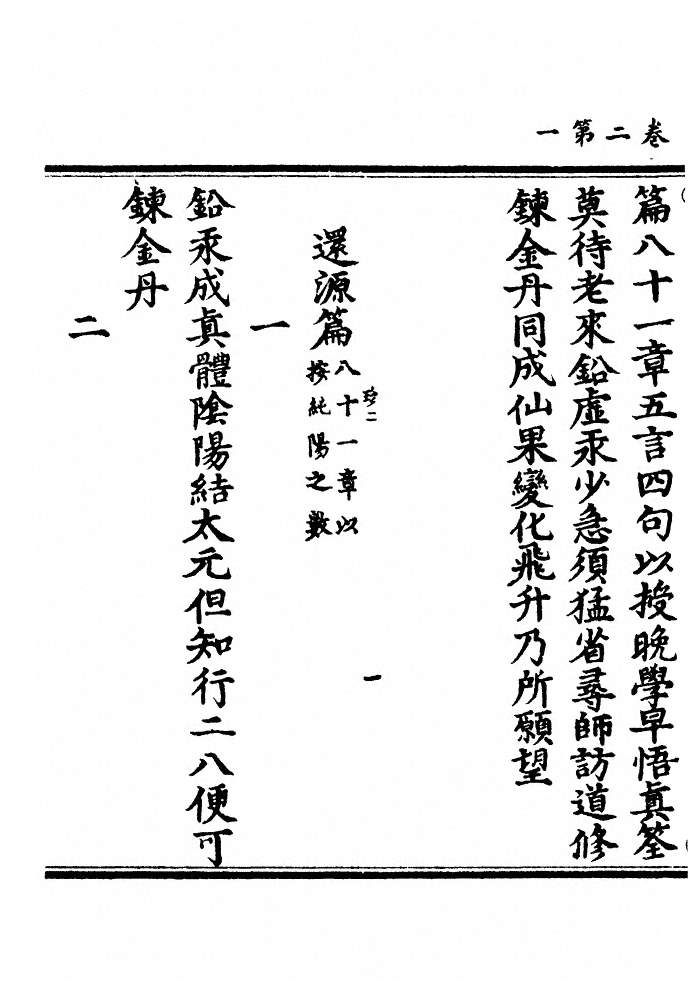 卷二第一
篇八十一章五言四句以授晚學早悟眞筌
莫待老來鉛虛汞少急須猛省尋師訪道修
鍊金丹同成仙果變化飛升乃所願望
珍二
一
還源篇八十一章以
按純陽之數
一
鉛汞成眞體陰陽結太元但知行二八便可
鍊金丹
二